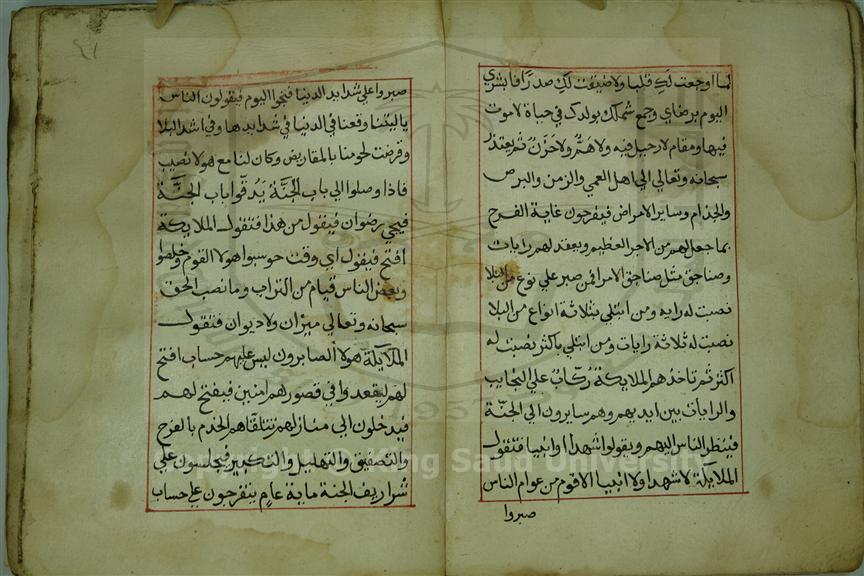 لما اوجعت لك قلبا ولا ضيقت لك صدرا فابشري
اليوم برضاي وجمع شملك بولدك في حياة لا موت
فيها ومقام لا رحيل فيه ولا هم ولا حزن ثم يعتذر
سبحانه وتعالي الي اهل العمي والزمن والبرص
والجذام وساير الامراض فيفرحون غاية الفرح
بما جعل لهم من الاجر العظيم ويعقد لهم رايات
وصناجق مثل صناجق الامرا فمن صبر علي نوع من البلا
نصبت له رايه ومن ابتلي بثلاثة انواع من البلا
نصبت له ثلاثة رايات ومن ابتلي باكثر نصبت له
اكثر ثم تاخذهم الملايكة ركاب علي النجايب
والرايات بين ايديهم وهم سايرون الي الجنة
فينظر الناس اليهم ويقولوا شهدا او انبيا فتقول
الملايكة لا شهدا ولا انبيا الا قوم من عوام الناس
صبروا
صبروا علي شدايد الدنيا فنجوا اليوم فيقولون الناس
ياليتنا وقعنا في الدنيا في شدايدها وفي اشد البلا
وقرضت لحومنا بالمقاريض وكان لنا مع هولا نصيب
فاذا وصلوا الي باب الجنة يدقوا باب الجنة
فيجي رضوان فيقول من هذا فتقول الملايكة
افتح فيقول اي وقت حوسبوا هولا القوم وخلصوا
وبعض الناس قيام من التراب وما نصب الحق
سبحانه وتعالي ميزان ولا ديوان فتقول
الملايكة هولا الصابرون ليس عليهم حساب افتح
لهم ليقعدوا في قصورهم امنين فيفتح لهم
فيدخلون الي منازلهم تتلقاهم الخدم بالفرح
والتصفيق والتهليل والتكبير فيجلسون علي
شراريف الجنة ماية عام يتفرجون علي حساب
King Saud University